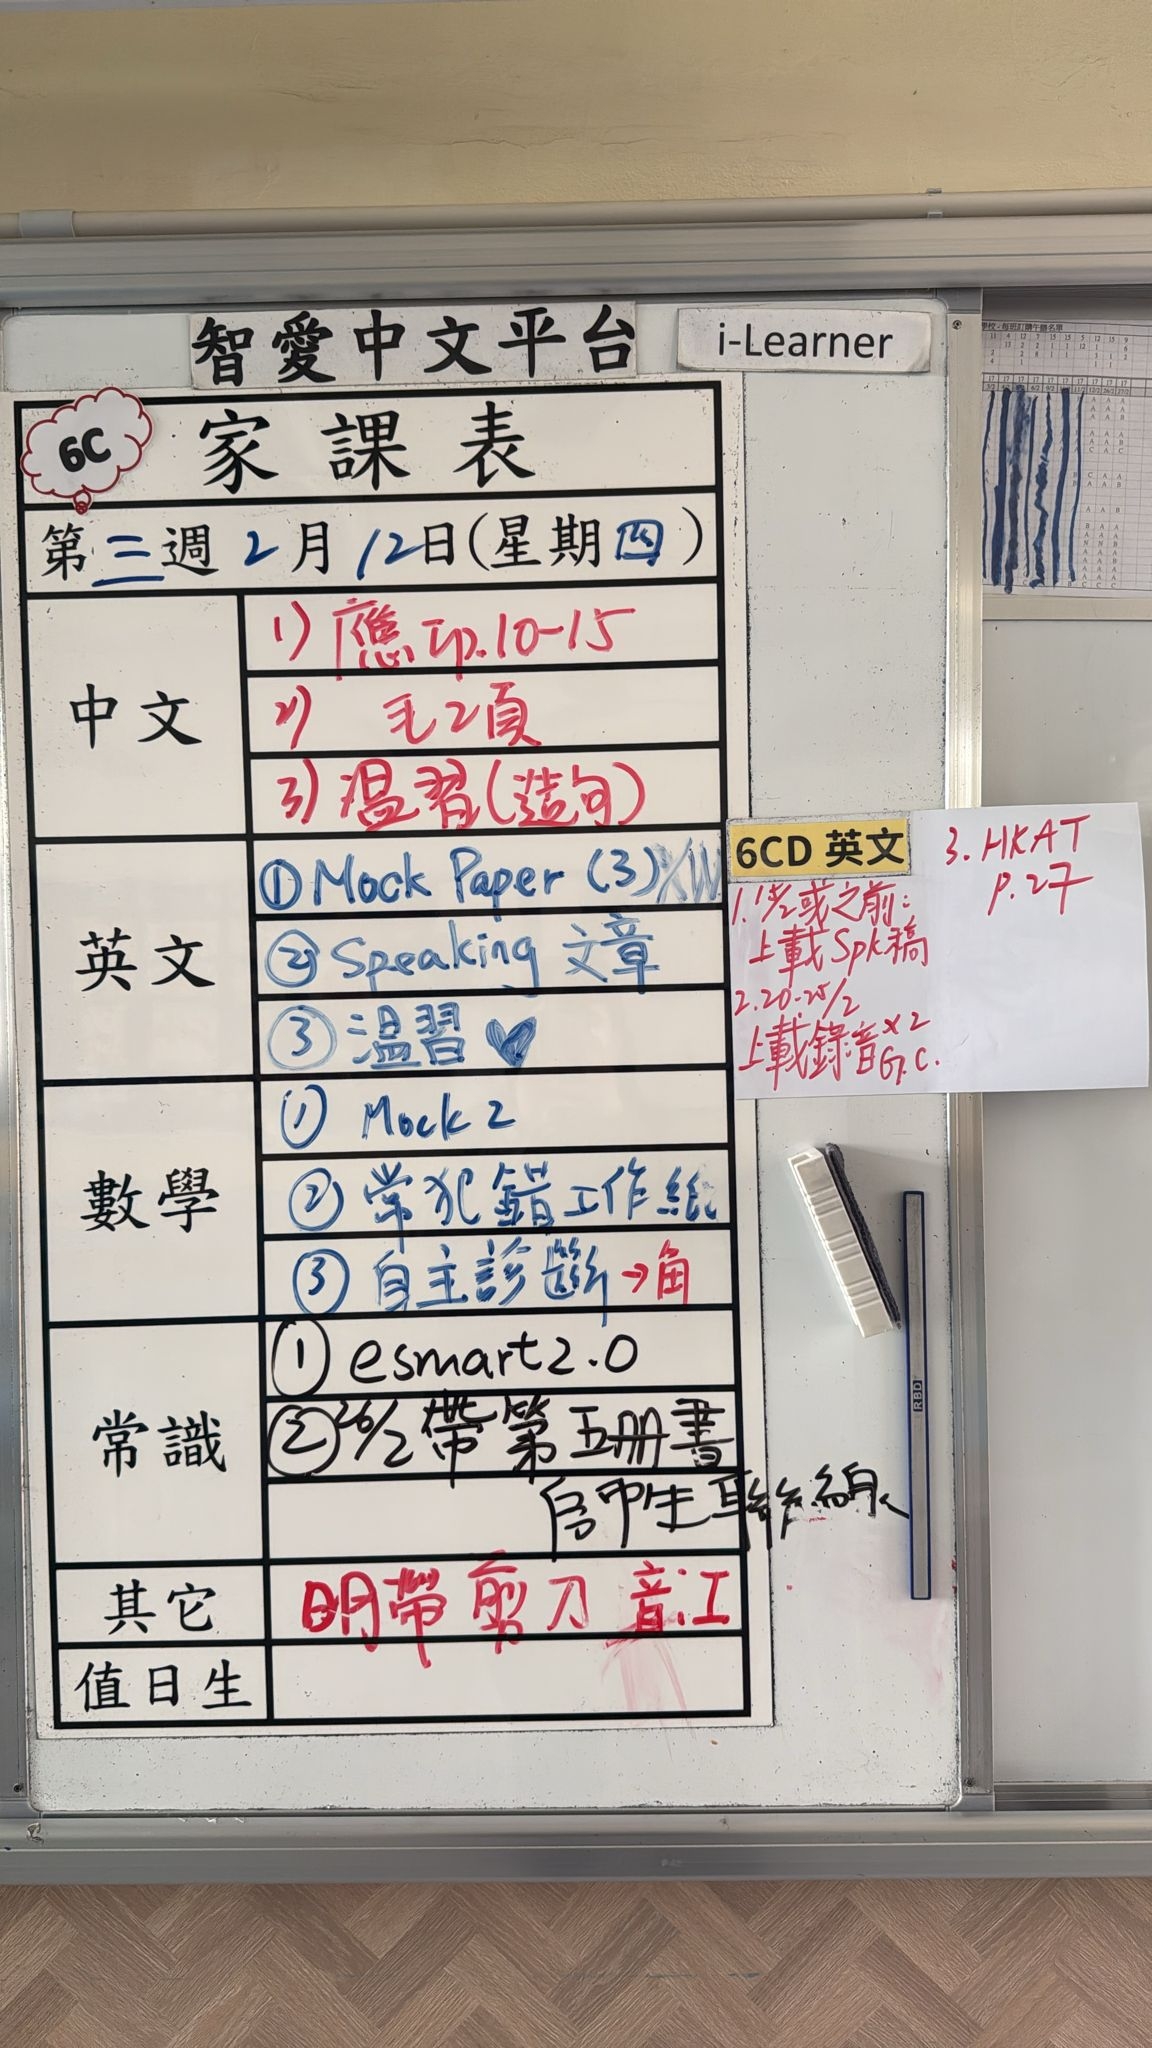 智愛中文平台
i-Learner
6C
家課表
第三週2月12日(星期四)
中文
1) 應卬p.10-15
2) 毛2頁
3) 溫習(造句)
英文
① Mock Paper (3)
② Speaking 文章
③ 溫習 ♥
數學
① Mock 2
② 常犯錯工作紙
③ 自主診斷→角
常識
① esmart2.0
② 26/2 帶第五冊書
中生聯線
其它
明帶剪刀
值日生
6CD 英文
或之前:
上載Spk稿
2. 20-25/2
上載錄音x2
G.C.
3. HKAT
p.27
RBD